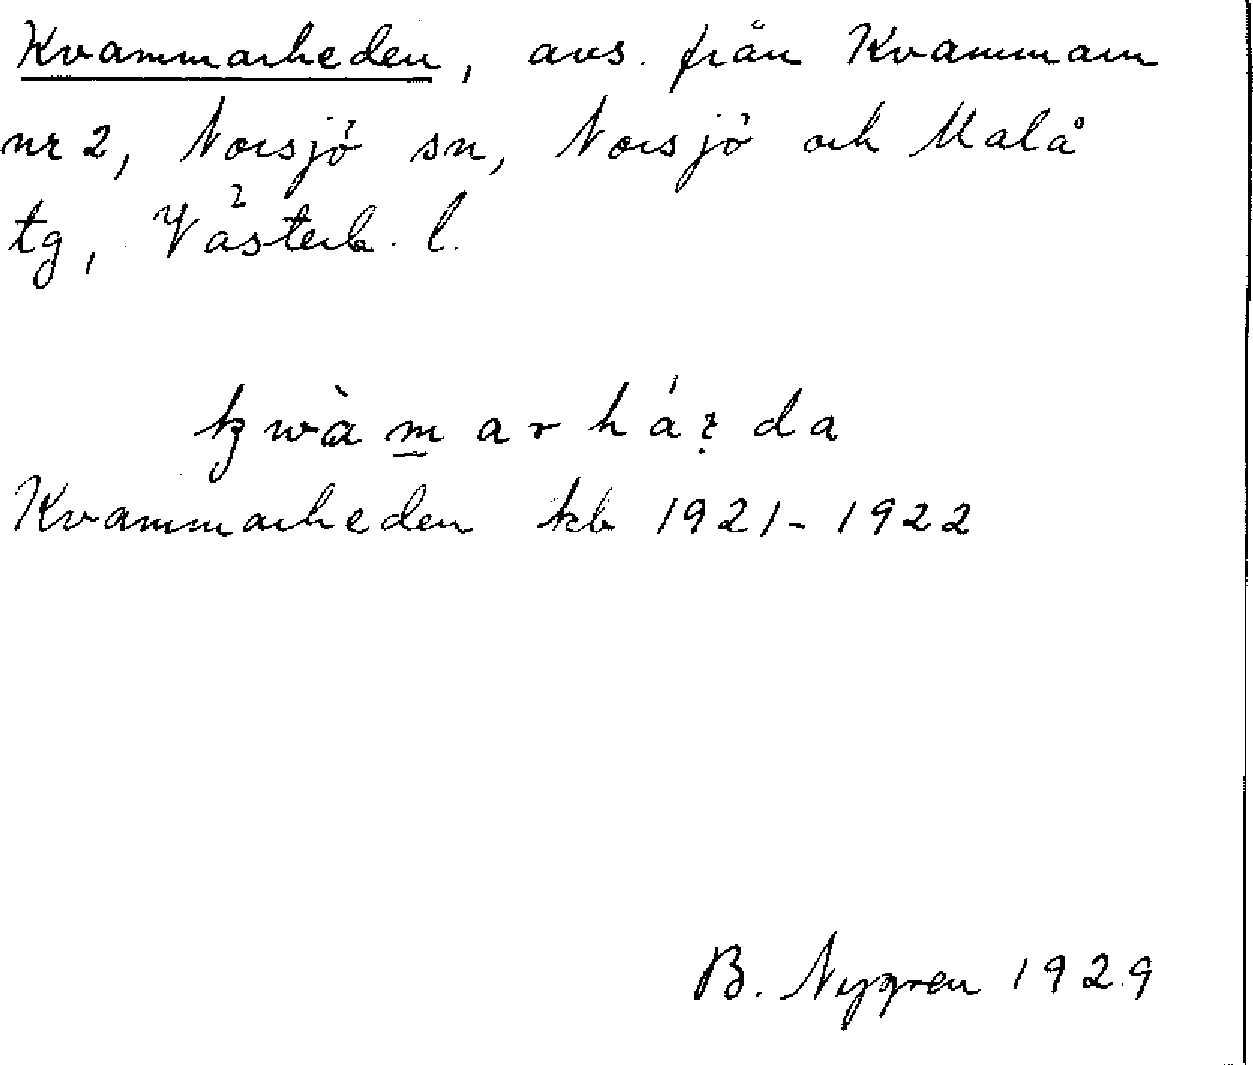 Kvammarheden, avs. från Kvammarn
nr 2, Norsjö sn, Norsjö och Malå
tg, Västerb. l.
Kvammarheden kb 1921-1922
B. Nygren 1929